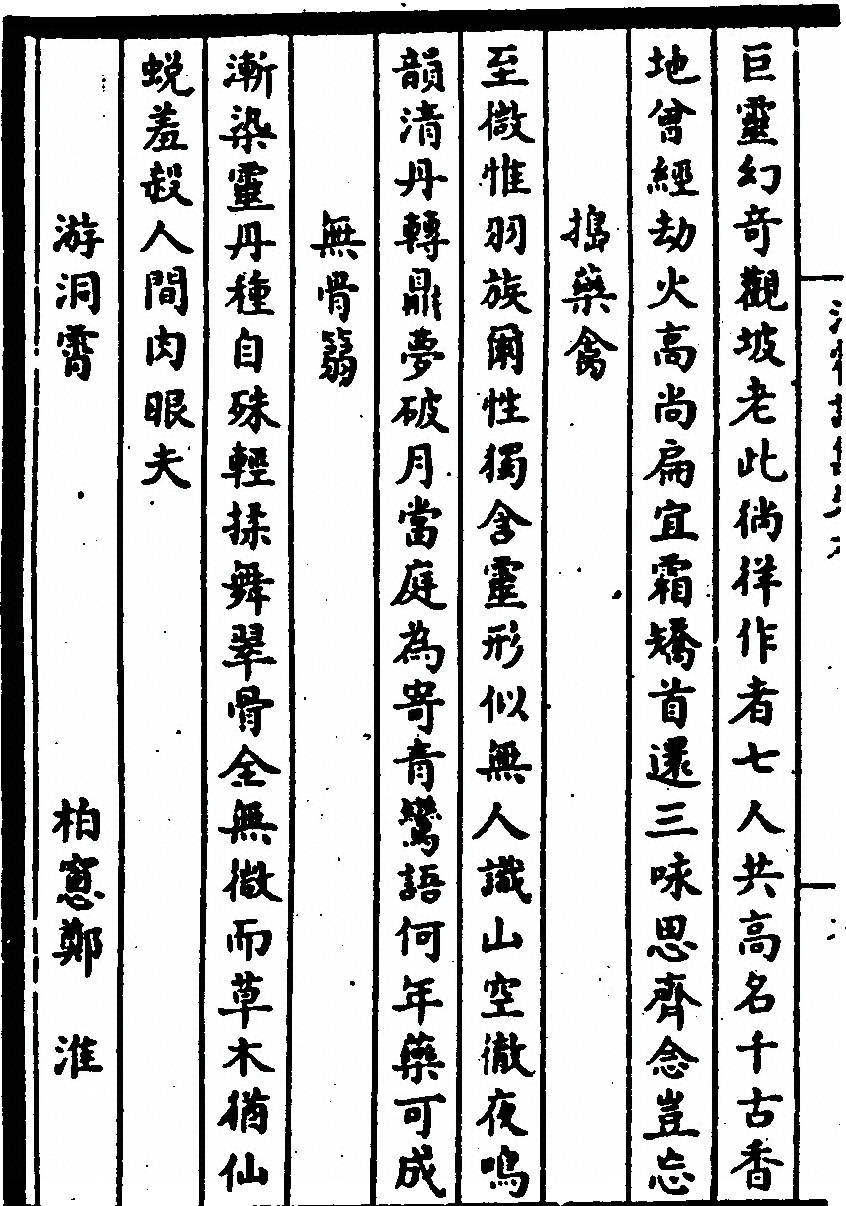 巨靈幻奇觀坡老此徜徉作者七人共高名千古香
地曾經劫火高尚扁宜霜矯首還三咏思齊念豈忘
搗藥禽
至微惟羽族爾性獨含靈形似無人識山空徹夜鳴
韻清丹轉鼎夢破月當庭為寄青鸞語何年藥可成
無骨箬
漸染靈丹種自殊輕揉舞翠骨全無微而草木猶仙
蛻羞殺人間肉眼夫
游洞霄
柏窓鄭 淮